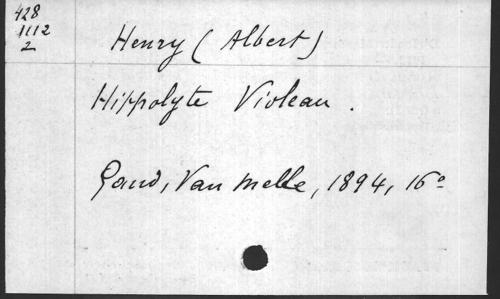 428
1112
2
Henry (Albert)
Hippolyte Violeau.
Gand, Van Melle, 1894, 16º